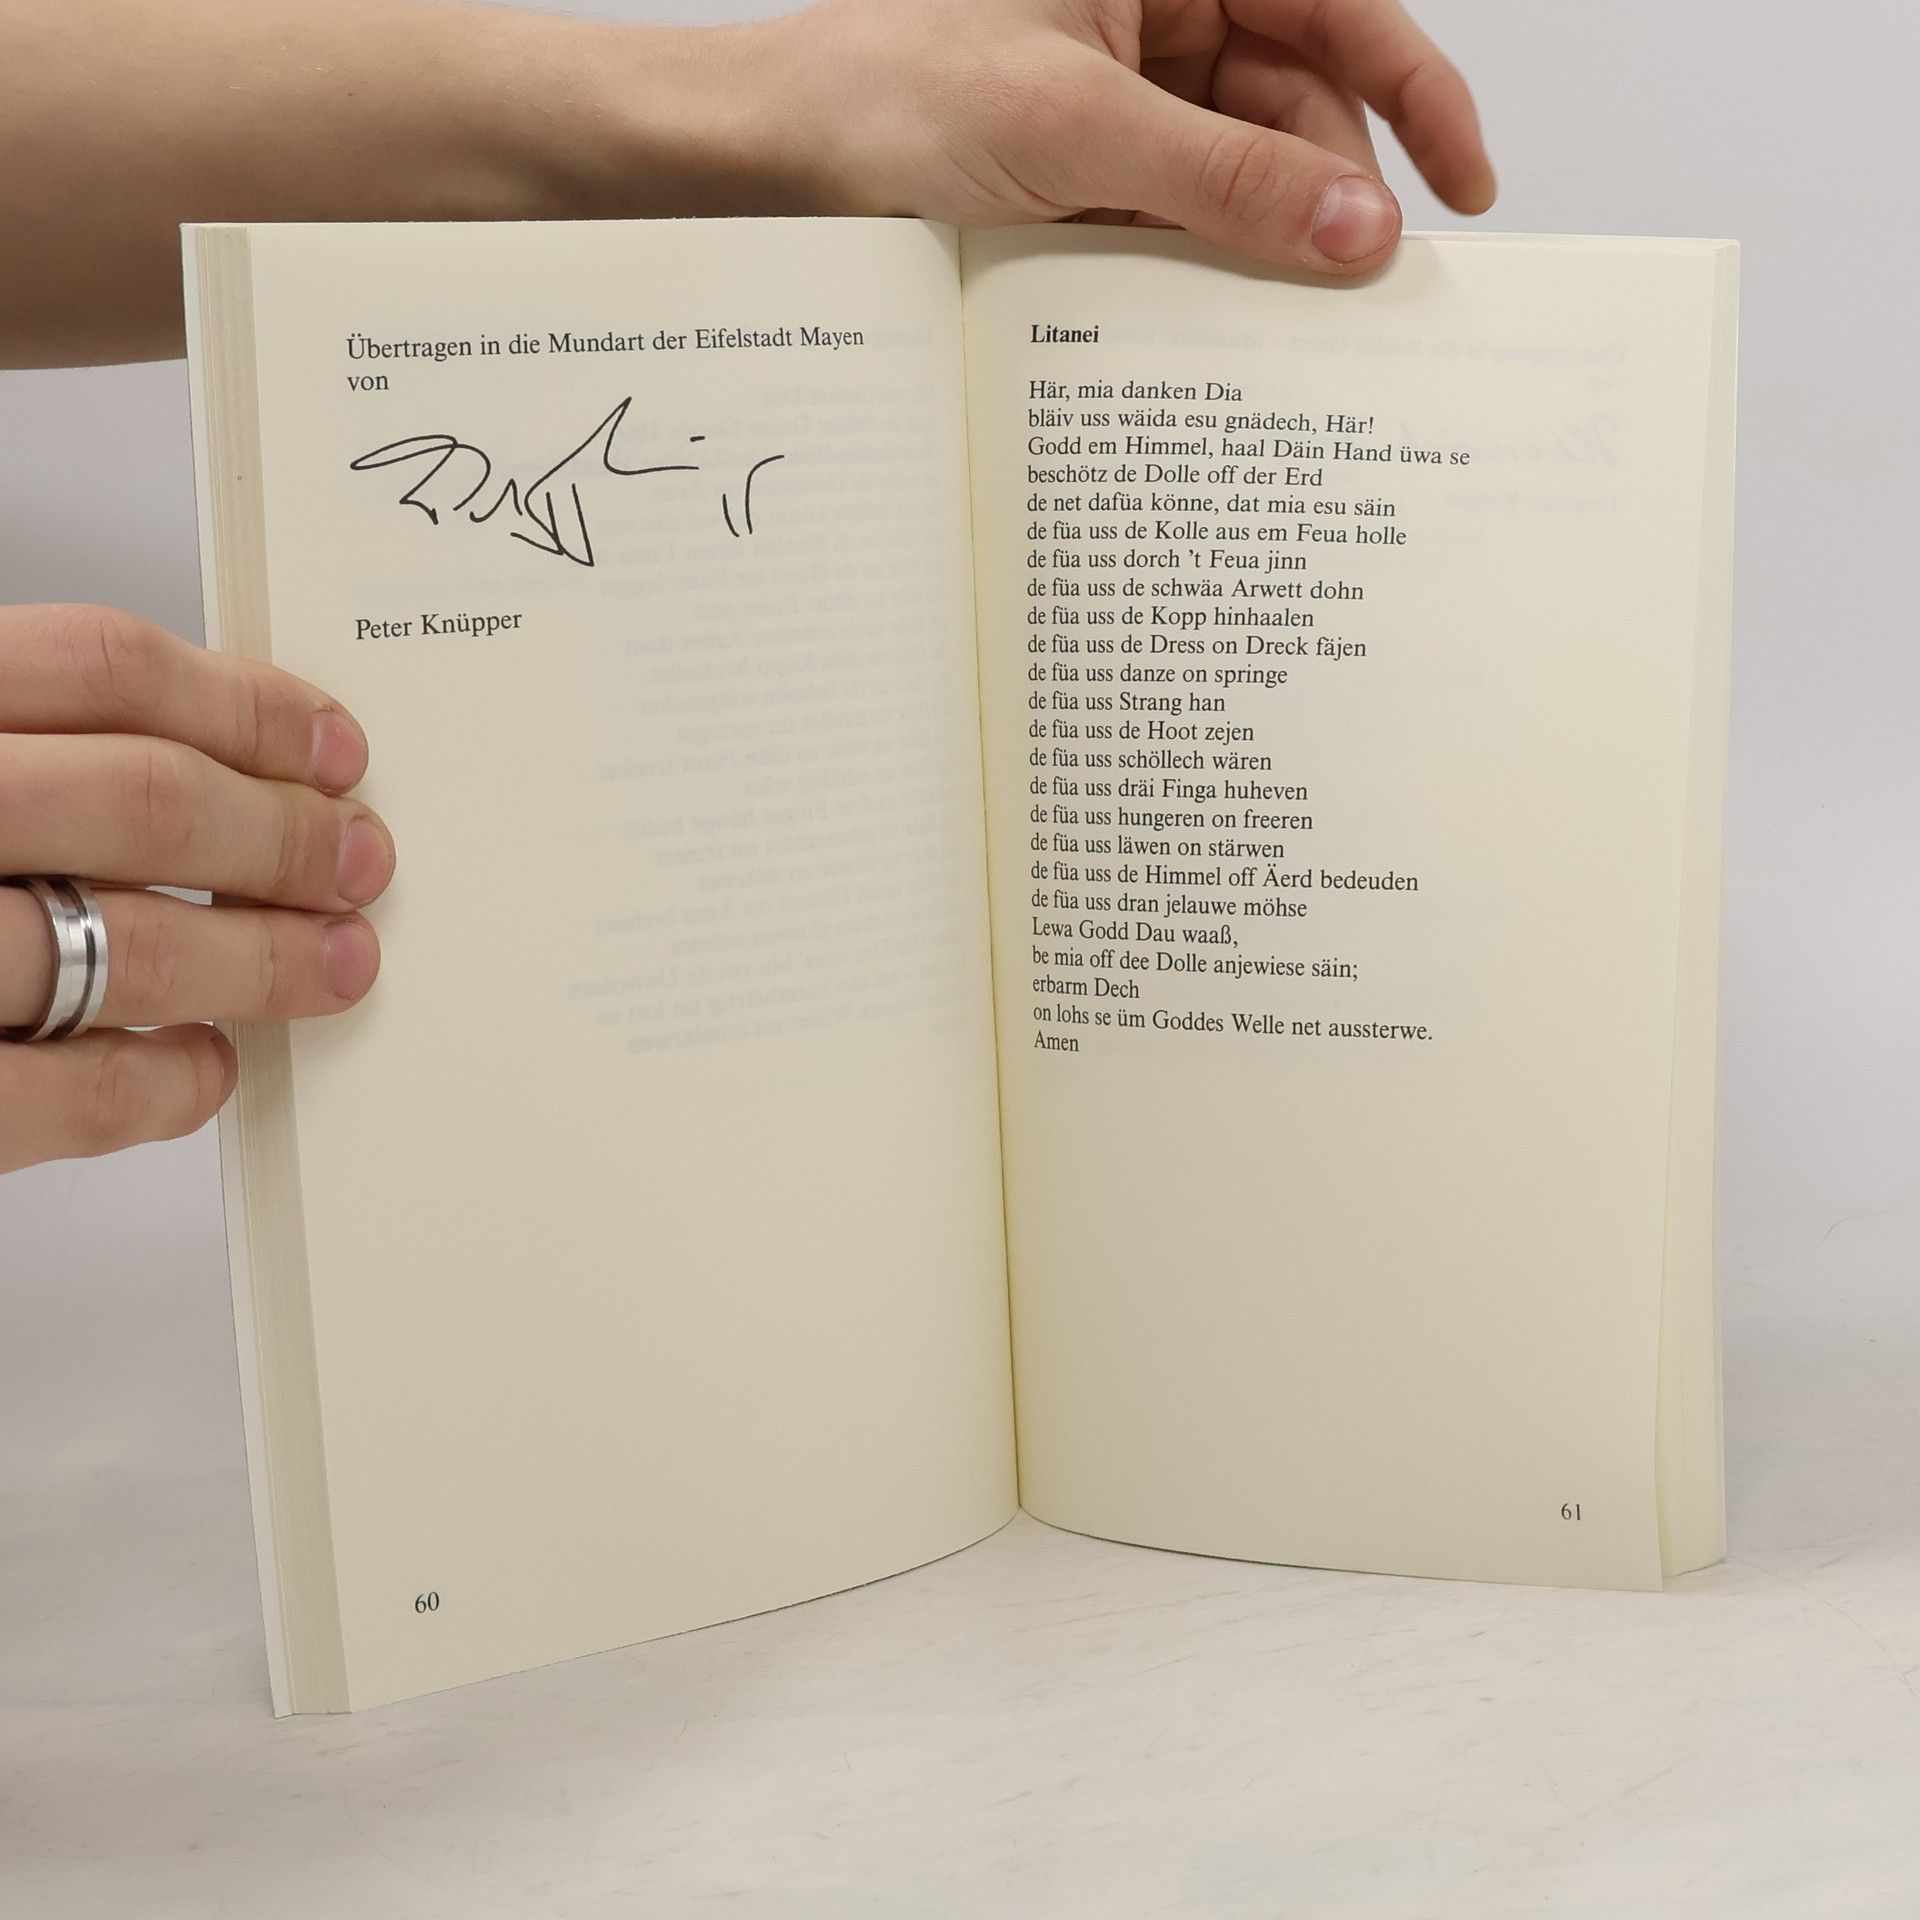 Übertragen in die Mundart der Eifelstadt Mayen
von
Peter Knüpper
60
Litanei
Här, mia danken Dia
bläiv uss wäida esu gnädech, Här!
Godd em Himmel, haal Däin Hand üwa se
beschötz de Dolle off der Erd
de net dafüa könne, dat mia esu säin
de füa uss de Kolle aus em Feua holle
de füa uss dorch ’t Feua jinn
de füa uss de schwäa Arwett dohn
de füa uss de Kopp hinhaalen
de füa uss de Dress on Dreck fäjen
de füa uss danze on springe
de füa uss Strang han
de füa uss de Hoot zejen
de füa uss schöllech wären
de füa uss dräi Finga huheven
de füa uss hungeren on freeren
de füa uss läwen on stärwen
de füa uss de Himmel off Äerd bedeuden
de füa uss dran jelauwe möhse
Lewa Godd Dau waaß,
be mia off dee Dolle anjewiese säin;
erbarm Dech
on lohs se üm Goddes Welle net aussterwe.
Amen
61